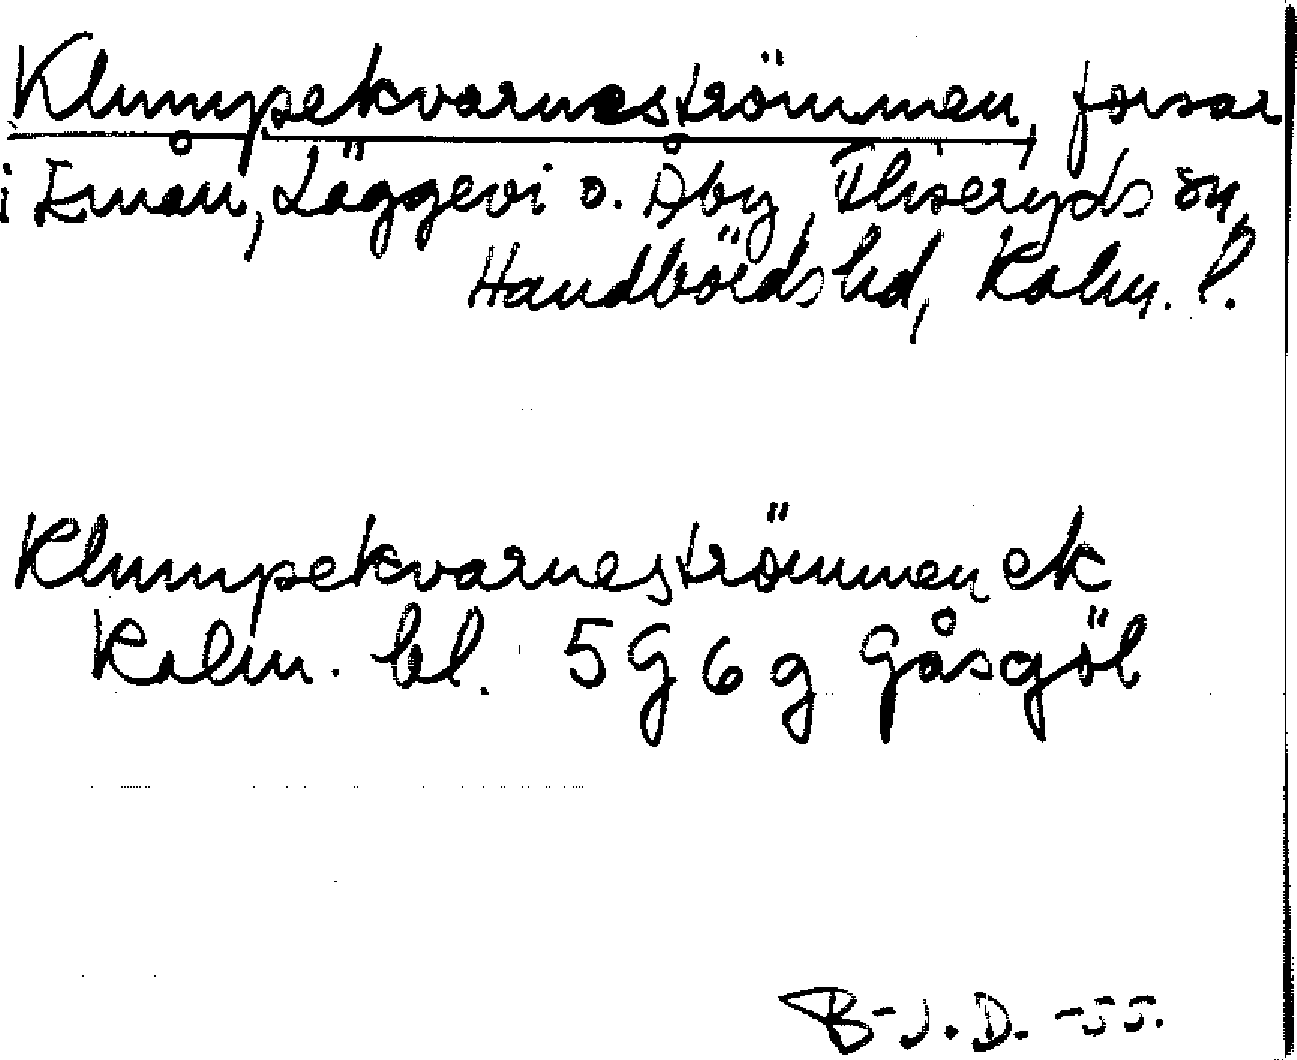 Klumpekvarneströmmen, forsar
i Emån, Läggevi o. Åby, Fliseryds sn,
Handbörds hd, Kalm. l.
Klumpekvarneströmmen ek
Kalm. bl. 5G6g Gåsgöl
B-J.D. -55.